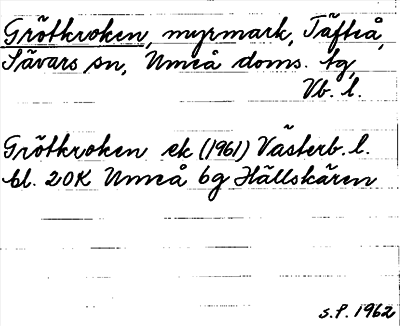 Grötkroken, myrmark, Täfteå,
Sävars sn, Umeå doms. tg,
Vb. l.
Grötkroken ek (1961) Västerb. l.
bl. 20K Umeå 6g Hällskären
S.P. 1962